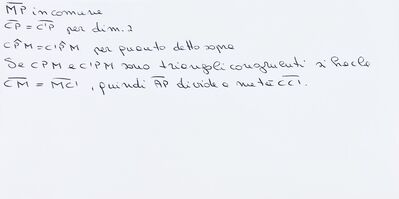 MP in comune
CP = C'P per dim. 2
CP̂M = C'P̂M per quanto detto sopra
Se CPM e C'PM sono triangoli congruenti si ha che
CM = MC', quindi AP divide a metà CC'.